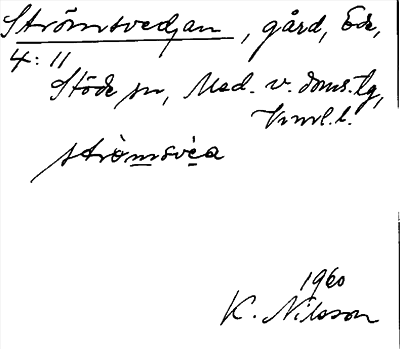 Strömsvedjan, gård, Ede,
4:11
Stöde sn, Med. v. doms.lg,
Vnrl.l.
strömsvea
1960
K. Nilsson